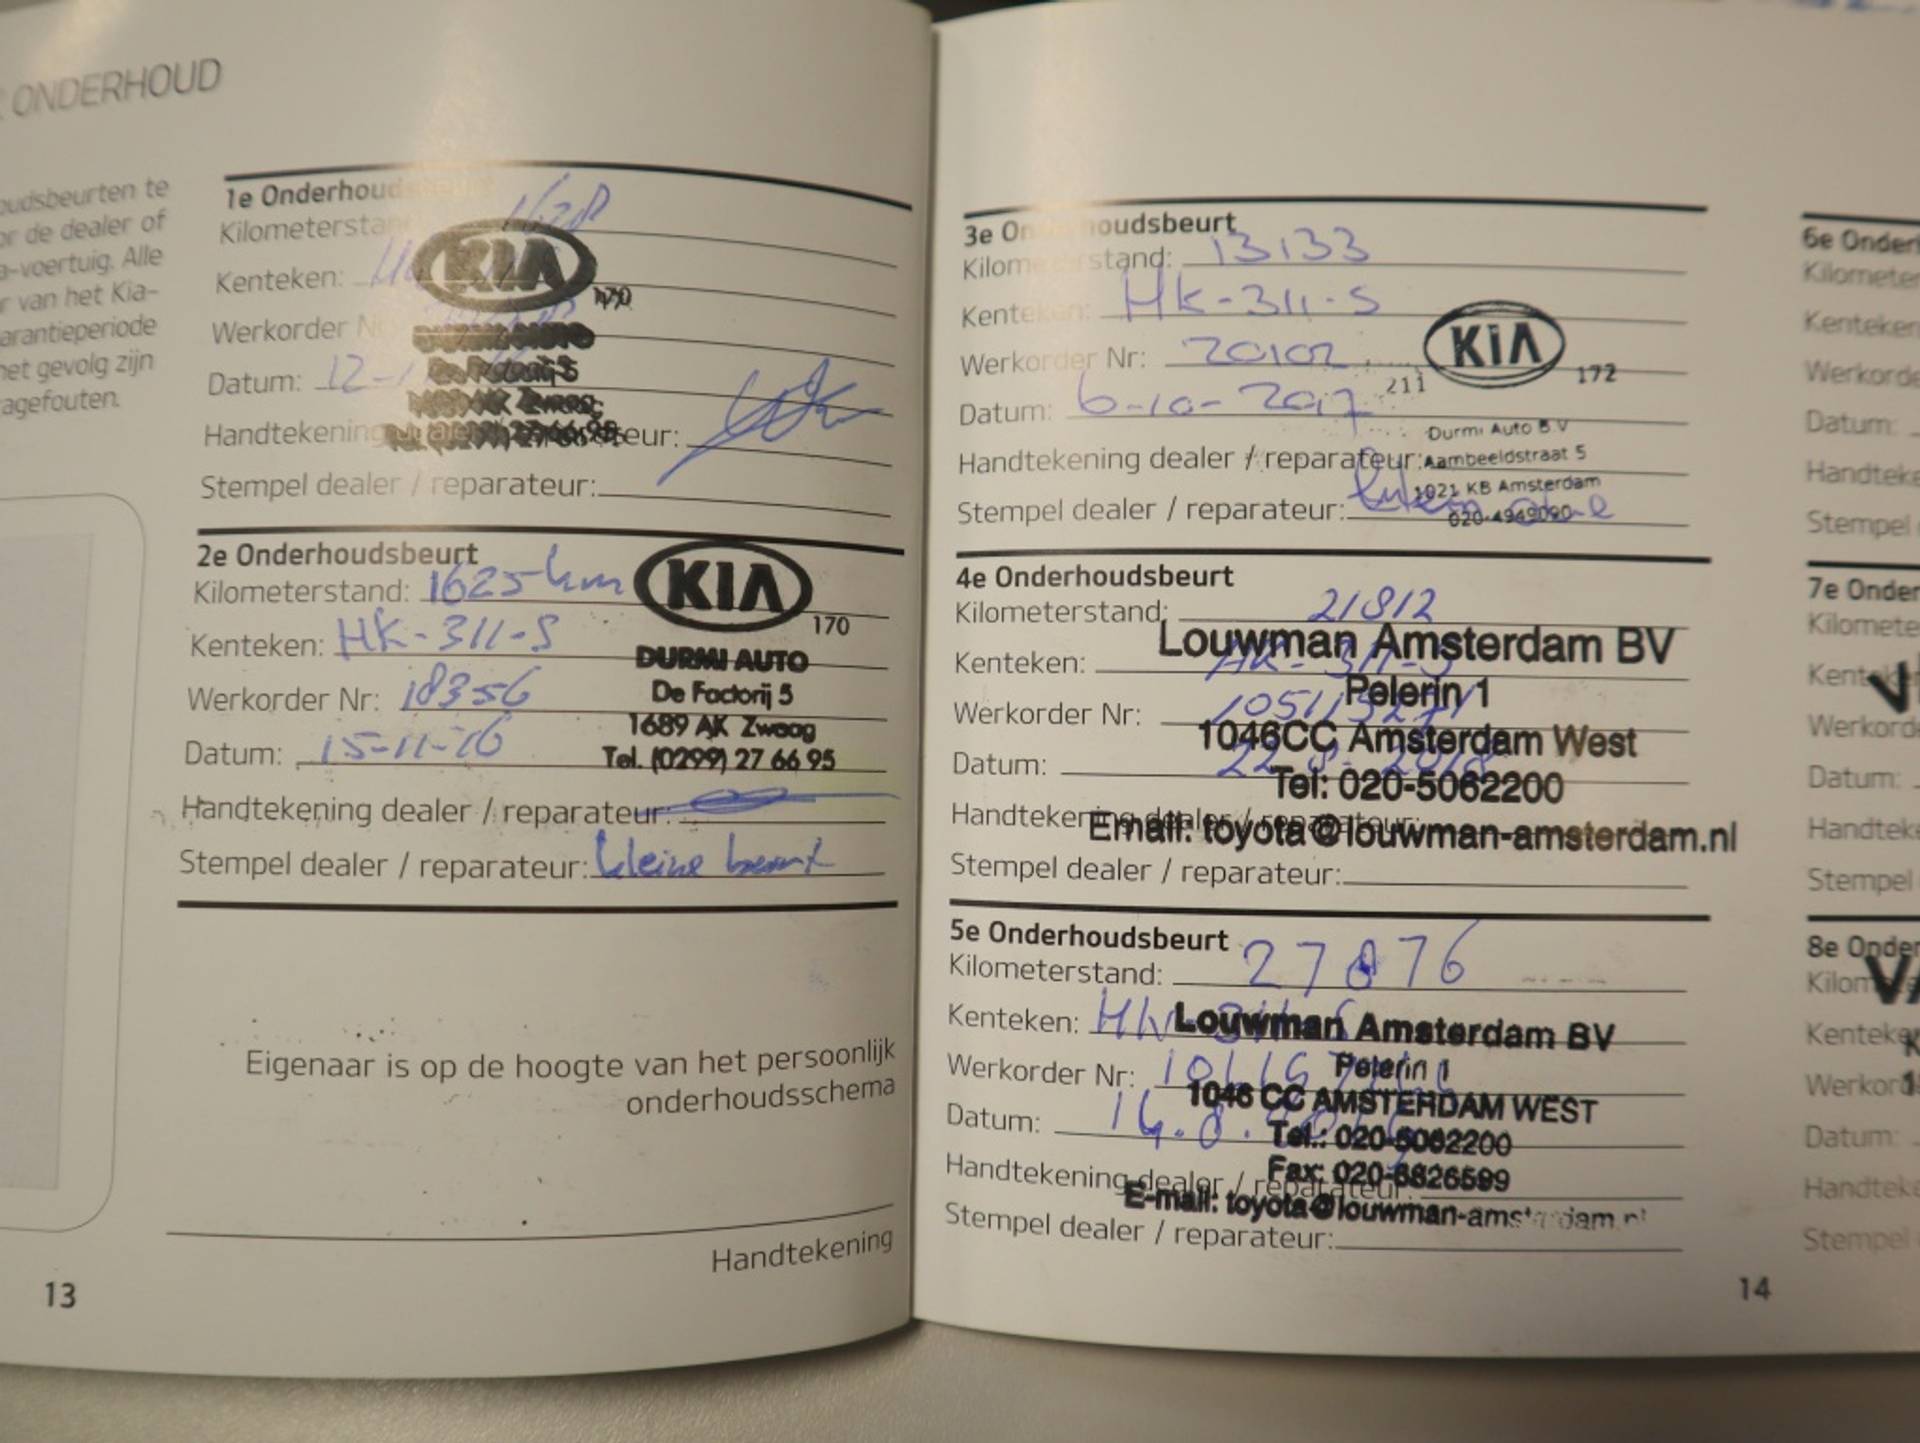 ONDERHOUD
oudsbeurten te
or de dealer of
a-voertuig. Alle
r van het Kia-
arantieperiode
het gevolg zijn
agefouten.
1e Onderhoud
Kilometersta
KIA
Kenteken:
170
Werkorder N
DURMI AUTO
Datum: 12-
De Factorij 5
1689 AK Zwaag
Handtekening eur:
Tel. (0299) 27 66 95
Stempel dealer / reparateur:
2e Onderhoudsbeurt
Kilometerstand: 1625 km
KIA
170
Kenteken: HK-311-S
DURMI AUTO
De Factorij 5
Werkorder Nr: 18356
1689 AK Zwaag
Datum: 15-11-16
Tel. (0299) 27 66 95
Handtekening dealer / reparateur:
Stempel dealer / reparateur: kleine beurt
Eigenaar is op de hoogte van het persoonlijk
onderhoudsschema
Handtekening
13
3e Onderhoudsbeurt
Kilometerstand: 13133
Kenteken: HK-311-S
KIA
Werkorder Nr: 20102
211 172
Datum: 6-10-2017
Durmi Auto B.V
Handtekening dealer / reparateur:
Aambeeldstraat 5
1021 KB Amsterdam
Stempel dealer / reparateur:
020-4949090
4e Onderhoudsbeurt
Kilometerstand: 21812
Louwman Amsterdam BV
Kenteken: HK-311-S
Pelerin 1
Werkorder Nr:
1046CC Amsterdam West
Datum: 22-8-2018
Tel: 020-5062200
Handtekening dealer / reparateur:
Email: toyota@louwman-amsterdam.nl
Stempel dealer / reparateur:
5e Onderhoudsbeurt
Kilometerstand: 27876
Kenteken:
Louwman Amsterdam BV
Pelerin 1
Werkorder Nr:
1046 CC AMSTERDAM WEST
Datum: 14.8.
Tel.: 020-5062200
Fax: 020-6826599
Handtekening dealer / reparateur:
E-mail: toyota@louwman-amsterdam.nl
Stempel dealer / reparateur:
14
6e Onder
Kilometer
Kenteken
Werkorde
Datum:
Handteke
Stempel
7e Onder
Kilomete
Kentek
Werkord
Datum:
Handteke
Stempel
8e Onder
Kilom
VA
Kenteke
Werkor
Datum:
Handteke
Stempel